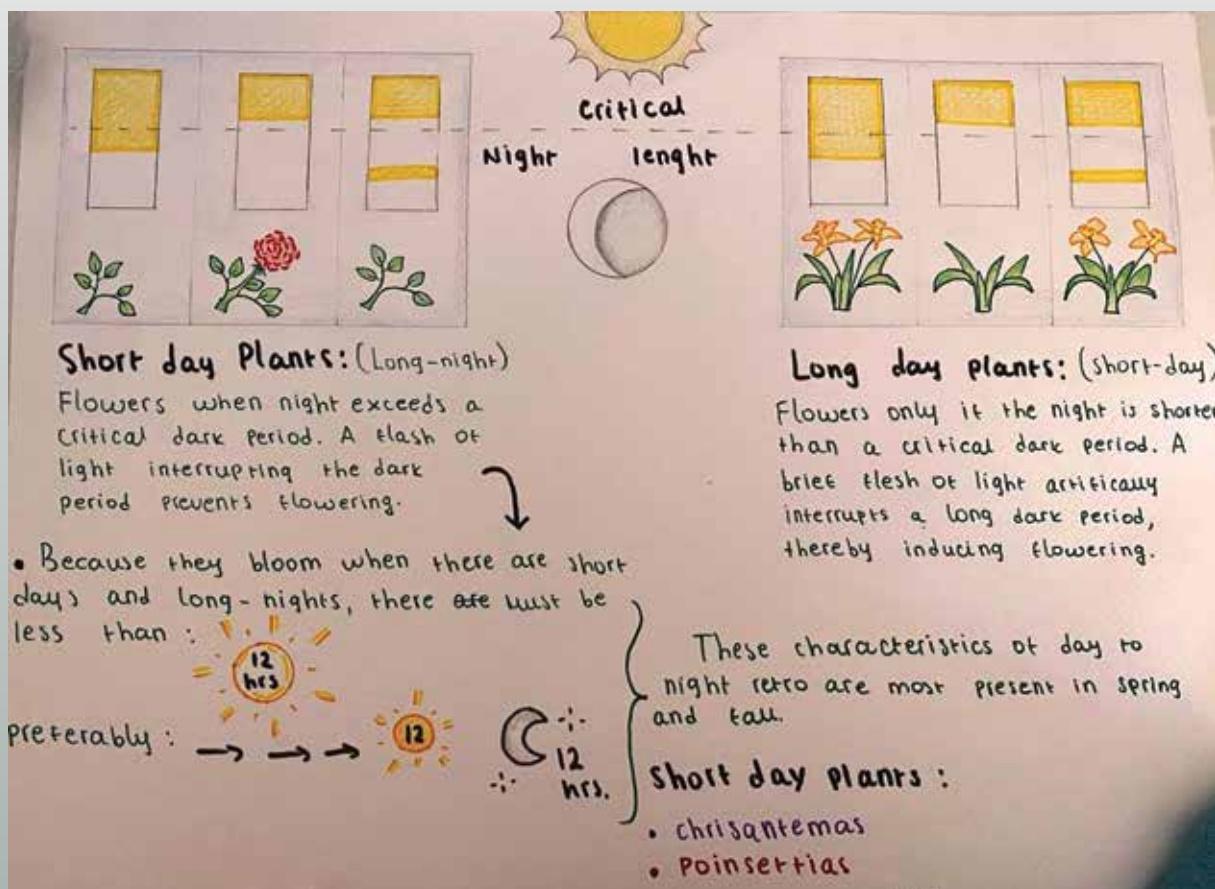 Critical
Night lenght
Short day Plants: (Long-night)
Flowers when night exceeds a
critical dark period. A flash of
light interrupting the dark
period prevents flowering.
• Because they bloom when there are short
days and long-nights, there are must be
less than :
12
hrs
preferably :
12
12
hrs.
Long day plants: (short-day)
Flowers only if the night is shorter
than a critical dark period. A
brief flesh of light artifically
interrupts a long dark period,
thereby inducing flowering.
These characteristics of day to
night retro are most present in spring
and fall.
Short day plants :
• chrisantemas
• Poinsertias